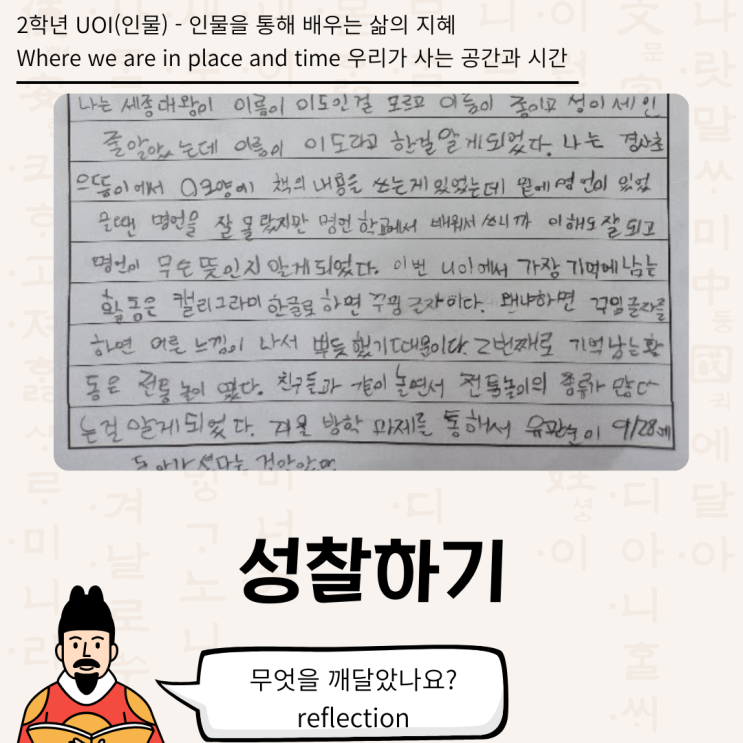 2학년 UOI(인물) - 인물을 통해 배우는 삶의 지혜
Where we are in place and time 우리가 사는 공간과 시간
나는 세종대왕이 이름이 이도인걸 모르고 이름이 종이고 성이 세인
줄알았는데 이름이 이도라고 한걸알게되었다. 나는 경상초
으뜸이에서 에 책의 내용을 쓰는게있었는데 밑에 명언이 있었
을때 명언을 잘 몰랐지만 명언 학교에서 배워서 쓰니까 이해도잘되고
명언이 무슨 뜻인지 알게되었다. 이번 UOI에서 가장 기억에남는
활동은 캘리그라피 한글로 하면 꾸밈 글자이다. 왜냐하면 꾸밈글자를
하면 어른 느낌이 나서 뿌듯했기때문이다. 2번째로 기억남는활
동은 전통 놀이 였다. 친구들과 같이 놀면서 전통놀이의 종류가 많다
는걸 알게되었다. 겨울 방학 과제를 통해서 유관순이 9/28에
돌아가셨다는 것알았다.
성찰하기
무엇을 깨달았나요?
reflection